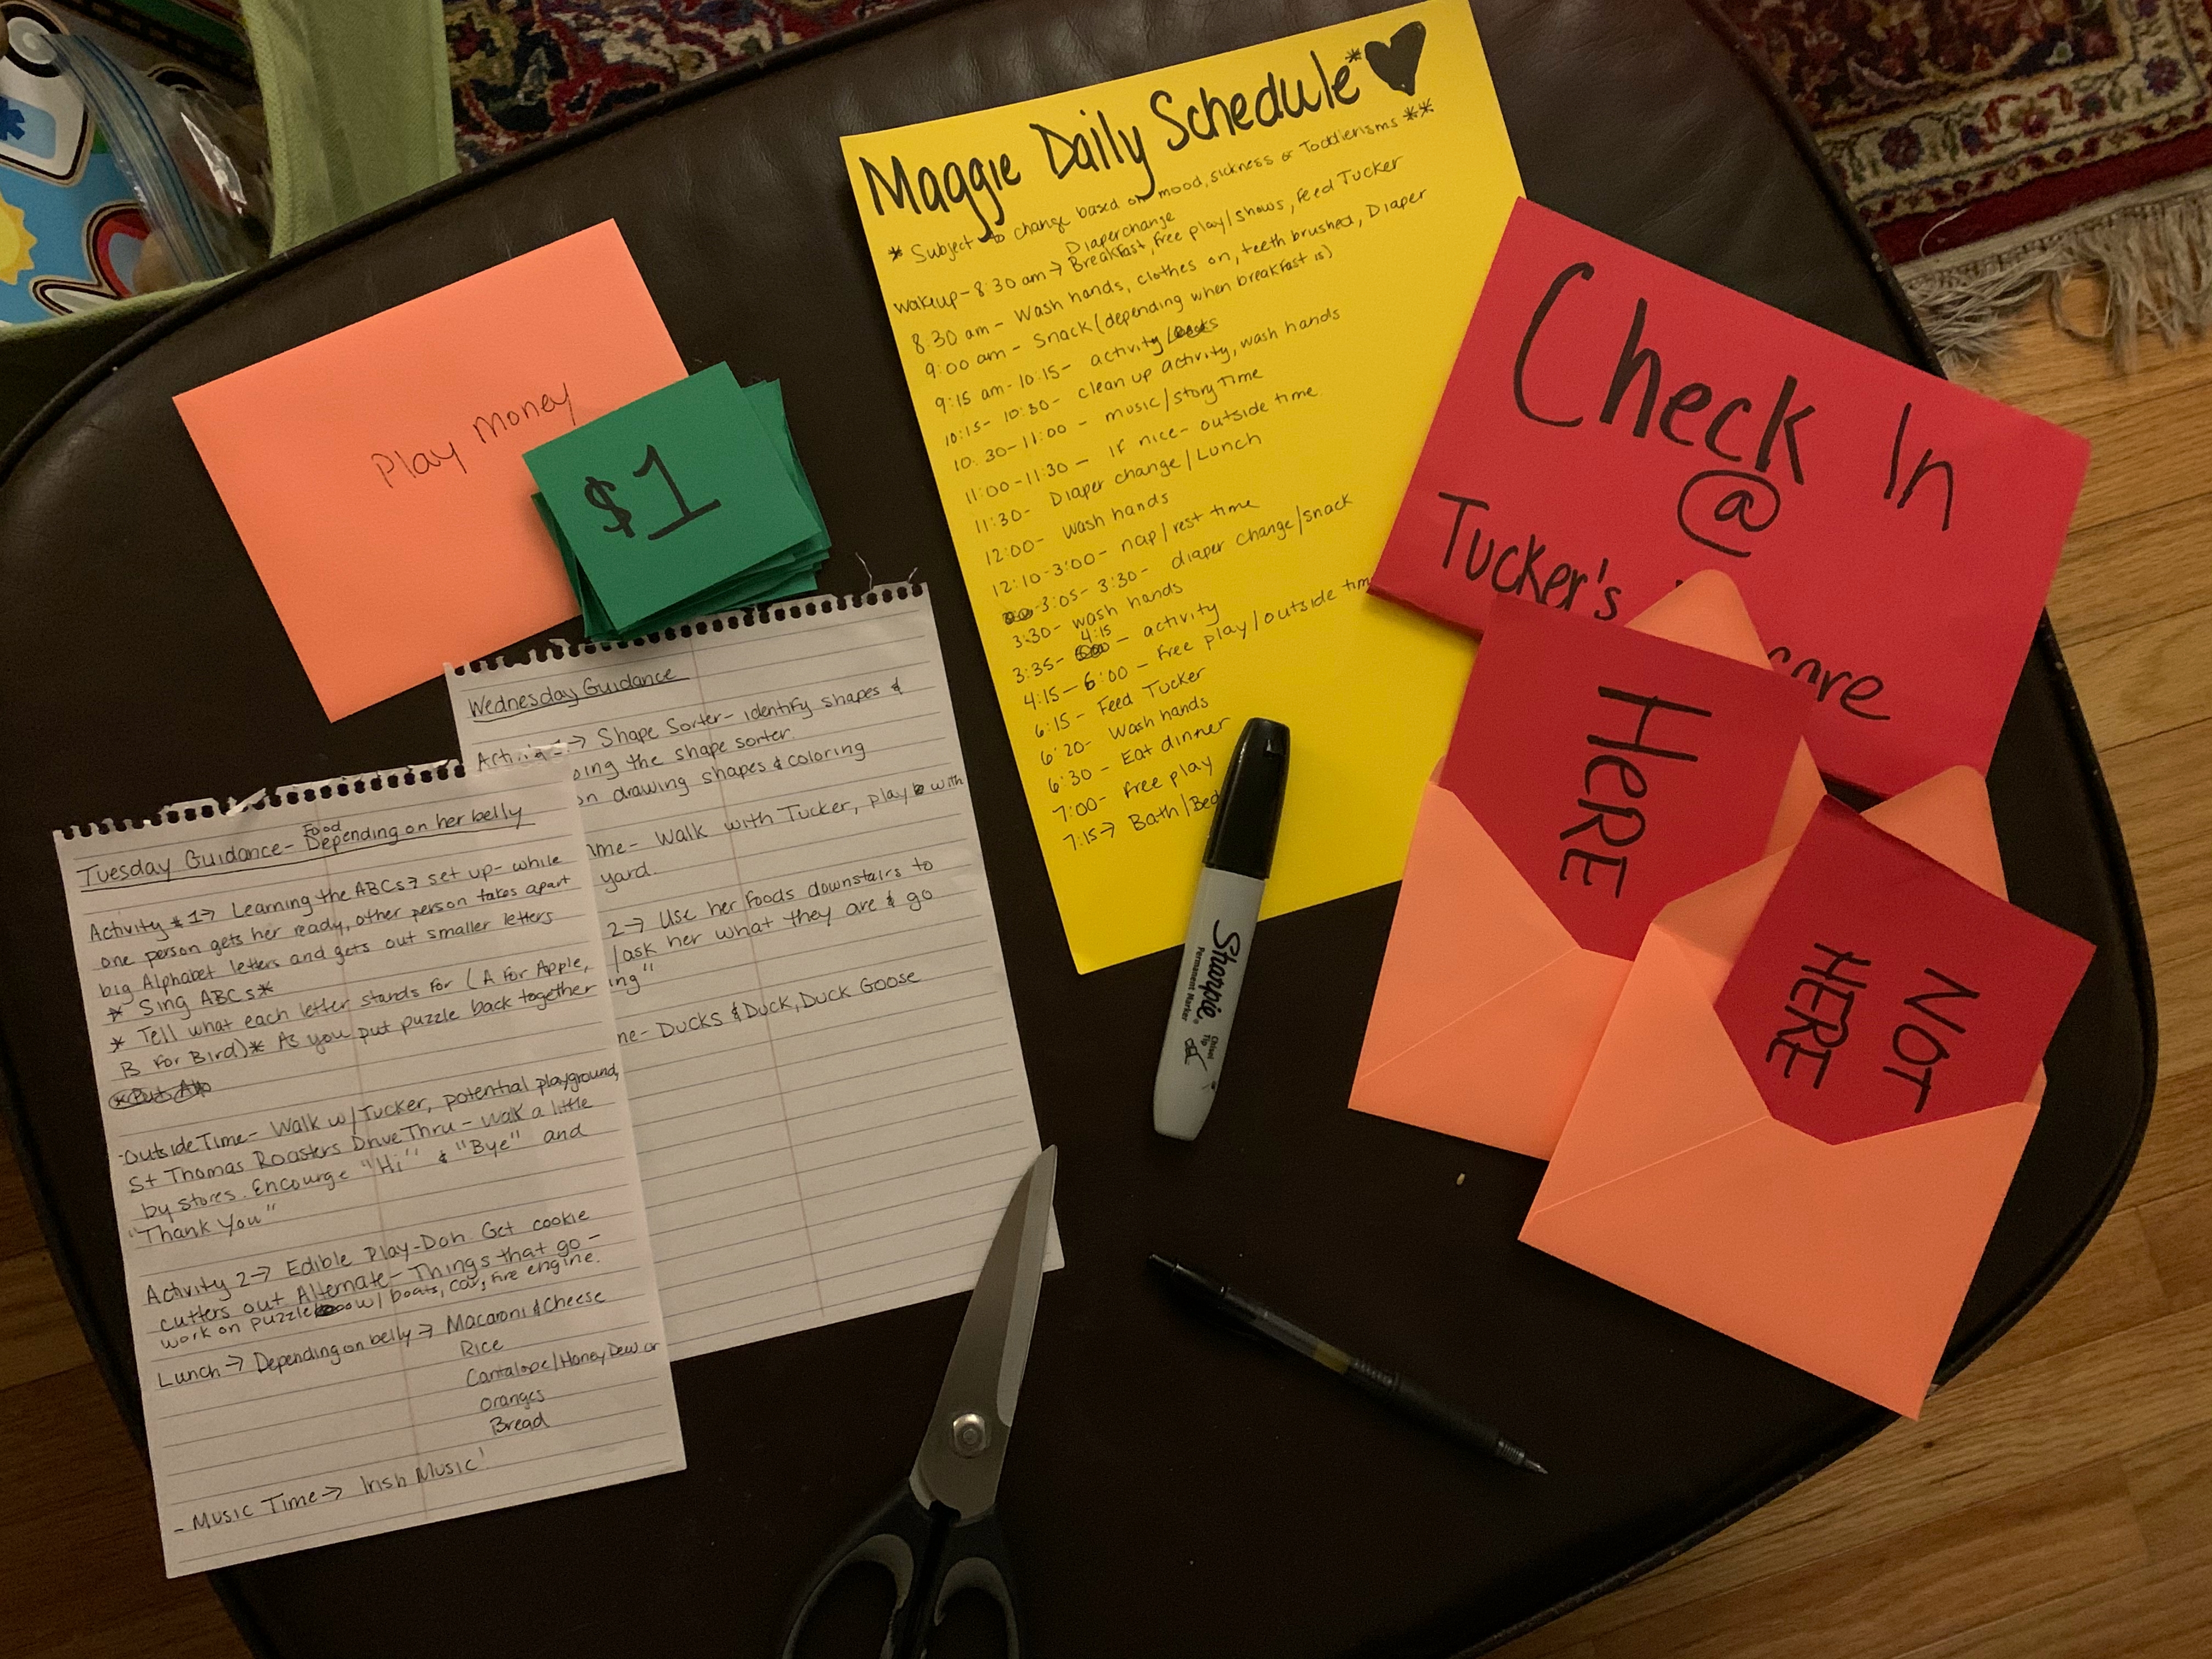 Maggie Daily Schedule*
* Subject to change based on mood, sickness or Toddlerisms **
Diaperchange
wakeup - 8:30 am → Breakfast, free play/shows, Feed Tucker
8:30 am - Wash hands, clothes on, teeth brushed, Diaper
9:00 am - Snack (depending when breakfast is)
9:15 am - 10:15 - activity/
10:15 - 10:30 - clean up activity, wash hands
10:30 - 11:00 - music/storyTime
11:00 - 11:30 - IF nice - outside time
11:30 - Diaper change/Lunch
12:00 - wash hands
12:10 - 3:00 - nap/rest time
3:05 - 3:30 - diaper change/snack
3:30 - wash hands
4:15
3:35 - - activity
4:15 - 6:00 - Free play/outside tim
6:15 - Feed Tucker
6:20 - Wash hands
6:30 - Eat dinner
7:00 - Free play
7:15 → Bath/Bed
Check In
@
Tucker's
care
HERE
NOT
HERE
Play Money
$1
Wednesday Guidance
Activity 1 → Shape Sorter - identify shapes &
oing the shape sorter.
on drawing shapes & coloring
me - Walk with Tucker, play with
yard.
2 → Use her foods downstairs to
/ask her what they are & go
ing"
ne - Ducks & Duck, Duck Goose
Food
Tuesday Guidance - Depending on her belly
Activity #1 → Learning the ABCs → set up - while
one person gets her ready, other person takes apart
big Alphabet letters and gets out smaller letters
* Sing ABCs *
* Tell what each letter stands for (A For Apple,
B For Bird) * As you put puzzle back together
*Put
-OutsideTime - Walk w/Tucker, potential playground,
St Thomas Roasters DriveThru - Walk a little
by stores. Encourge "Hi" & "Bye" and
"Thank You"
Activity 2 → Edible Play-Doh. Get cookie
cutters out Alternate - Things that go -
work on puzzle w/ boats, car, fire engine.
Lunch → Depending on belly → Macaroni & Cheese
Rice
Cantalope/Honey Dew or
Oranges
Bread
- Music Time → Irish Music
Sharpie
Permanent Marker
Chisel
Tip